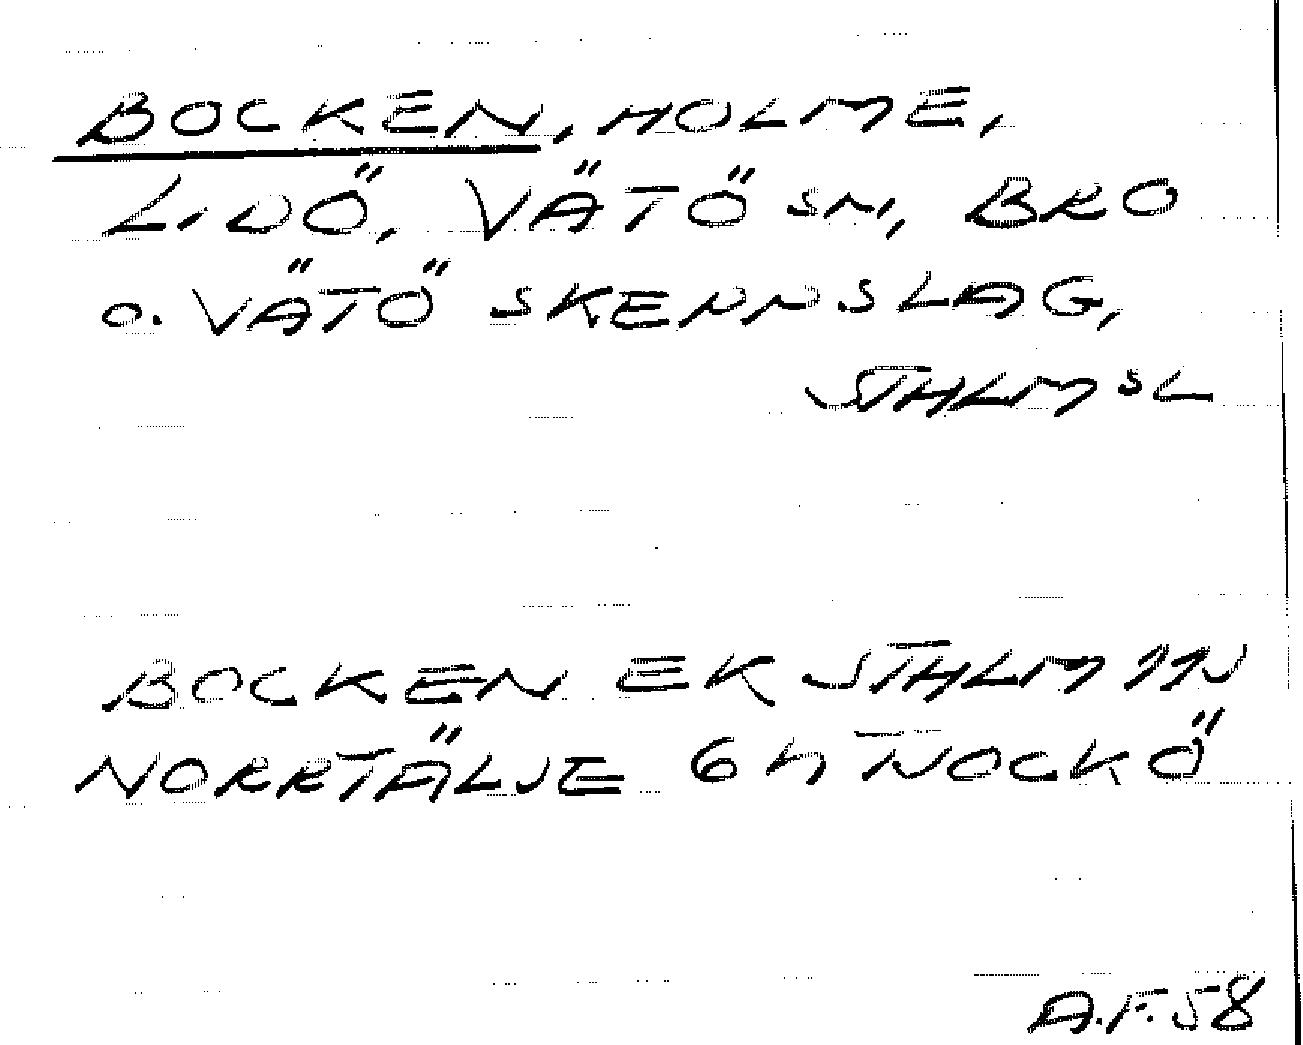 BOCKEN, HOLME,
LIDÖ, VÄTÖ SN, BRO
O. VÄTÖ SKEPPSLAG,
STHLMS L
BOCKEN EK STHLM
NORRTÄLJE 6h TJOCKÖ
A.F. 58